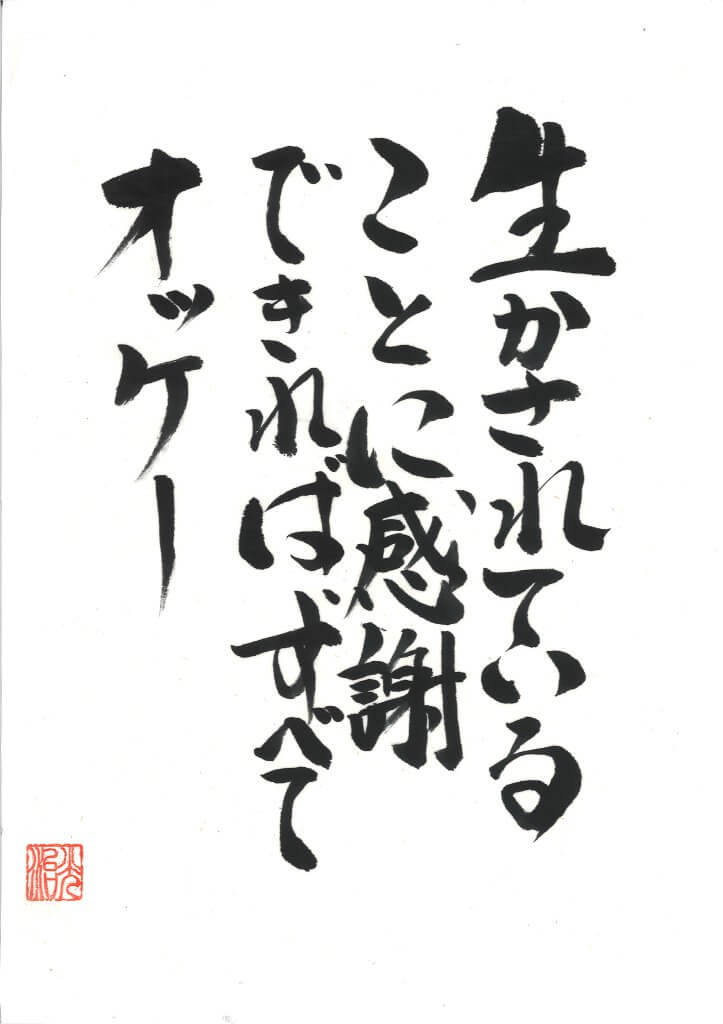 生かされている
ことに感謝
できればすべて
オッケー